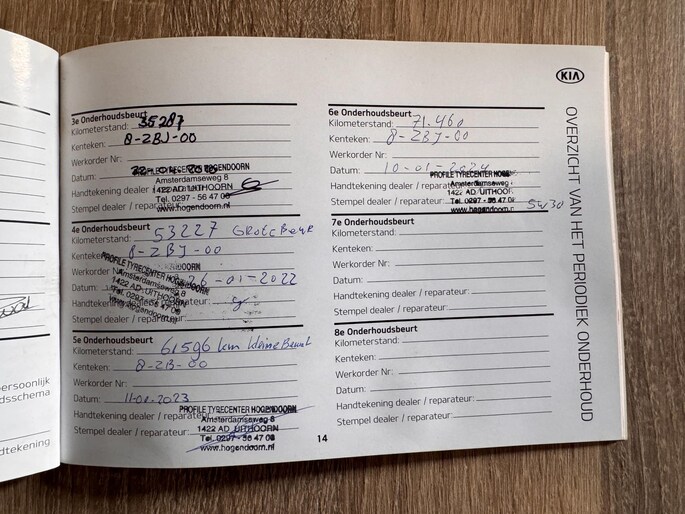 KIA
OVERZICHT VAN HET PERIODIEK ONDERHOUD
3e Onderhoudsbeurt
Kilometerstand: 35287
Kenteken: 8-ZBJ-00
Werkorder Nr:
Datum:
PROFILE TYRECENTER HOGENDOORN
Amsterdamseweg 8
Handtekening dealer / reparateur:
1422 AD UITHOORN
Tel. 0297 - 56 47 08
Stempel dealer / reparateur:
www.hogendoorn.nl
4e Onderhoudsbeurt
Kilometerstand: 53227 Grote Beurt
Kenteken: 8-ZBJ-00
PROFILE TYRECENTER HOGENDOORN
Werkorder Nr
Amsterdamseweg 8
Datum: 26-01-2022
1422 AD UITHOORN
Tel. 0297 - 56 47 08
Handtekening dealer / reparateur:
www.hogendoorn.nl
Stempel dealer / reparateur:
5e Onderhoudsbeurt
Kilometerstand: 61596 km kleine Beurt
Kenteken: 8-ZB-00
Werkorder Nr:
Datum: 11-01-2023
PROFILE TYRECENTER HOGENDOORN
Handtekening dealer / reparateur:
Amsterdamseweg 8
1422 AD UITHOORN
Stempel dealer / reparateur:
Tel. 0297 - 56 47 08
www.hogendoorn.nl
6e Onderhoudsbeurt
Kilometerstand: 71.460
Kenteken: 8-ZBJ-00
Werkorder Nr:
Datum: 10-01-2024
PROFILE TYRECENTER
Handtekening dealer / reparateur:
Amsterdamseweg 8
1422 AD UITHOORN
Stempel dealer / reparateur:
Tel. 0297 - 56 47
www.hogendoorn.n
5W30
7e Onderhoudsbeurt
Kilometerstand:
Kenteken:
Werkorder Nr:
Datum:
Handtekening dealer / reparateur:
Stempel dealer / reparateur:
8e Onderhoudsbeurt
Kilometerstand:
Kenteken:
Werkorder Nr:
Datum:
Handtekening dealer / reparateur:
Stempel dealer / reparateur:
14
ersoonlijk
dsschema
dtekening